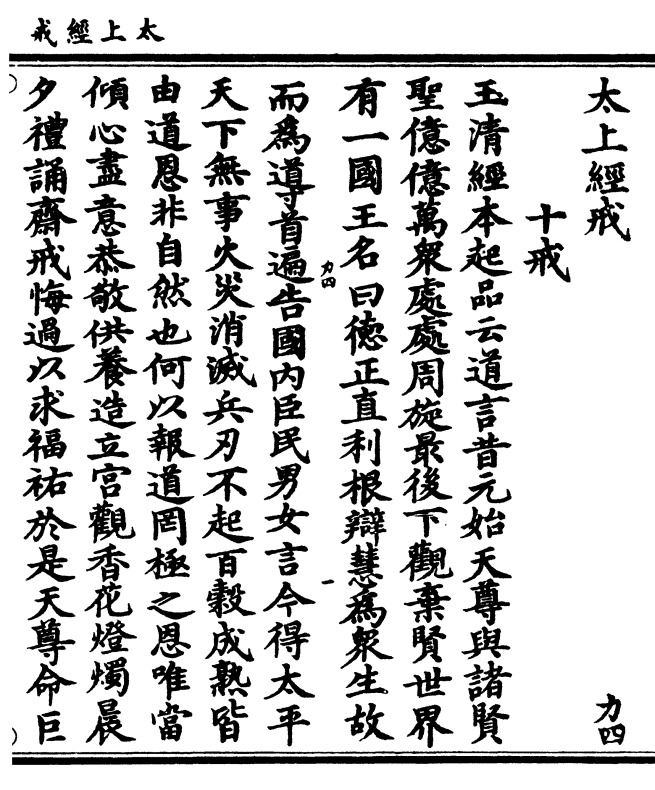 太上經戒
太上經戒
力四
十戒
玉清經本起品云道言昔元始天尊與諸賢
聖億億萬衆處處周旋最後下觀棄賢世界
有一國王名曰德正直利根辯慧為衆生故
力四
一
而為導首遍告國内臣民男女言今得太平
天下無事火災消滅兵刃不起百穀成熟皆
由道恩非自然也何以報道罔極之恩唯當
傾心盡意恭敬供養造立宫觀香花燈燭晨
夕禮誦齋戒悔過以求福祐於是天尊命巨